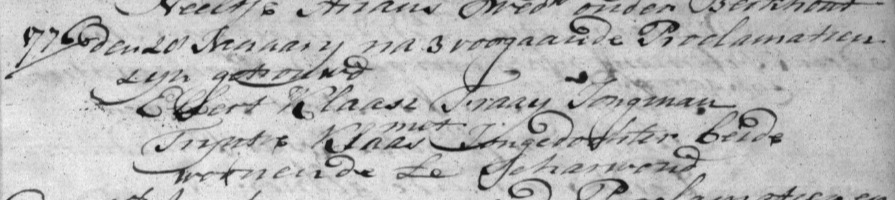 Neeltje Ariaans Wed: ouden Berkhout
1776 den 28 January na 3 voorgaande Proclamatien
zyn getrouwd
Elbert Klaasz Fraay Jongman
met
Tryntie Klaas Jongedochter beide
woonende te Scharwoud
Proclamatien en